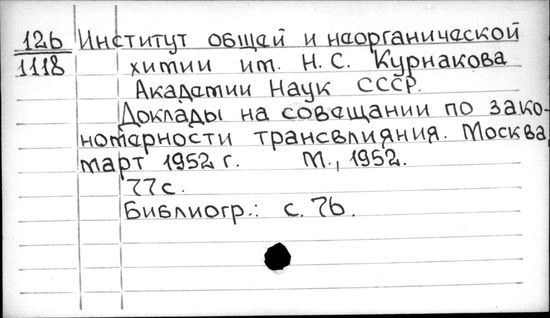 126 Институт общей и неорганической
1118 химии им. Н.С. Курнакова
Академии Наук СССР.
Доклады на совещании по зако-
номерности трансвлияния. Москва,
март 1952 г. М., 1952.
77с.
Библиогр.: с. 76.